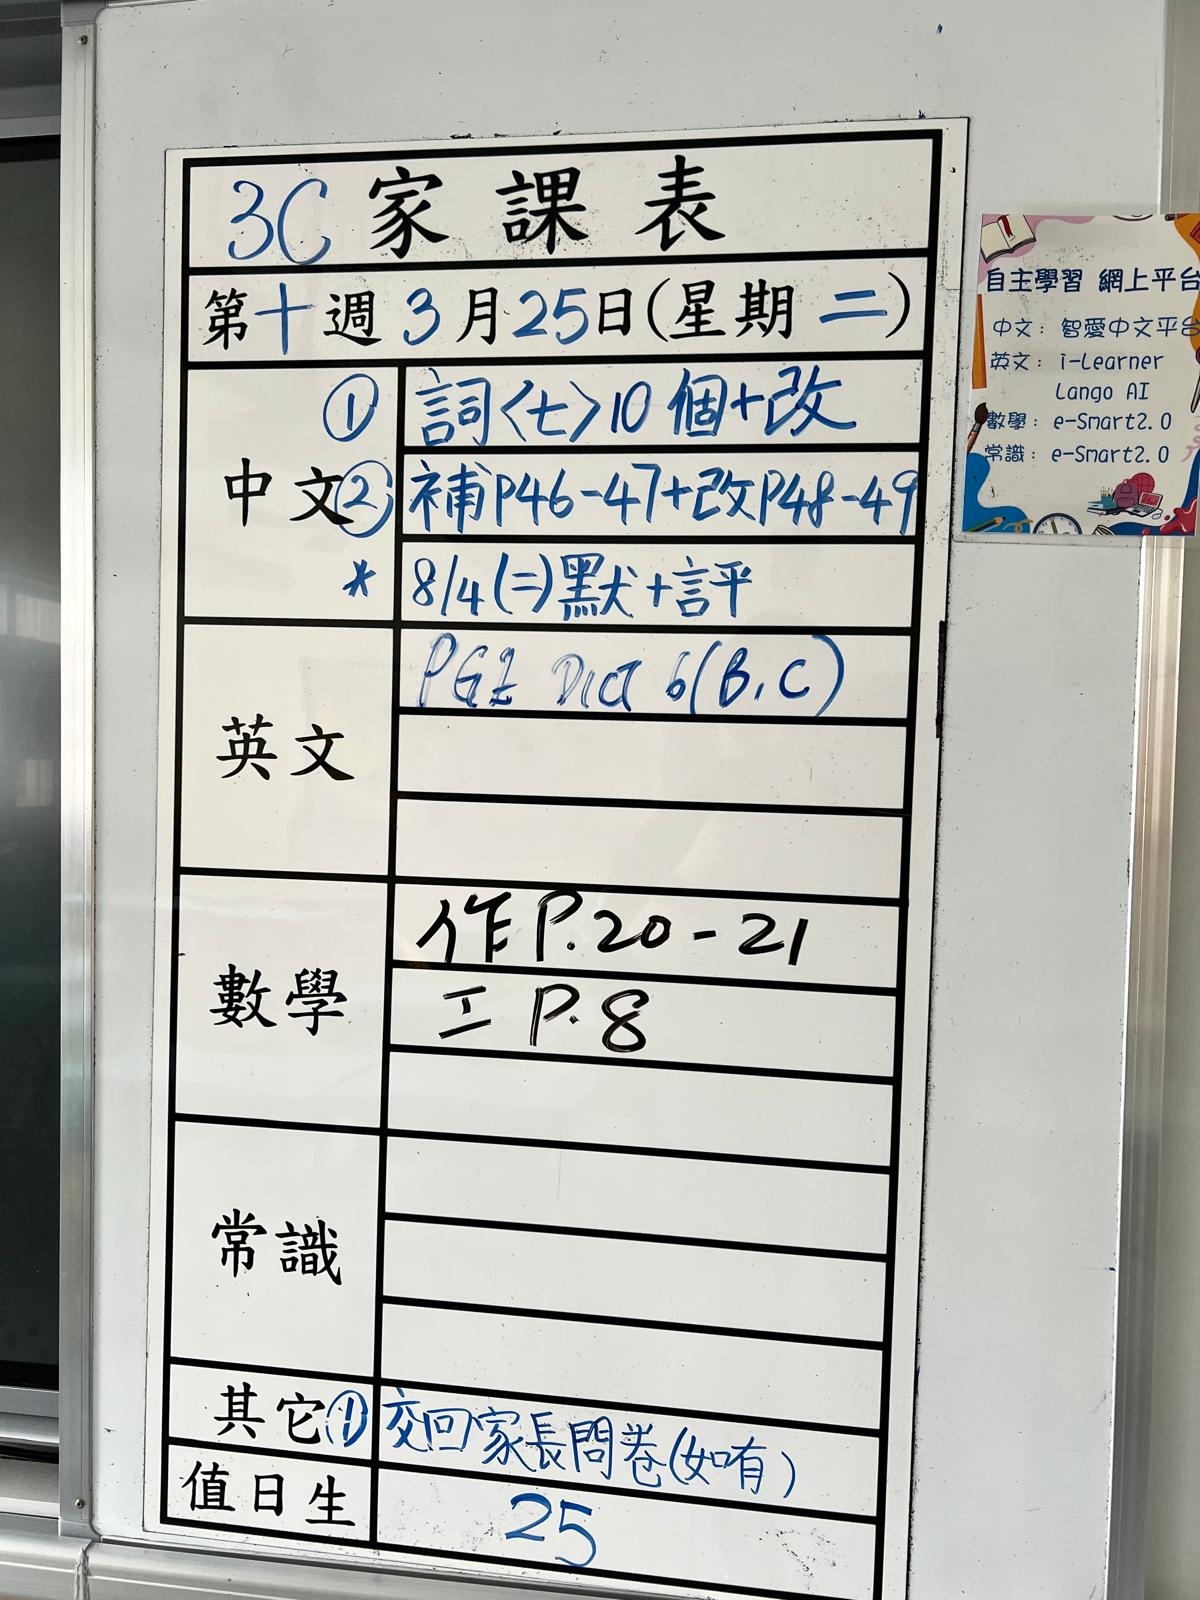 3C 家課表
第十週 3月25日(星期二)
中文
① 詞〈七〉10個+改
② 補P46-47+改P48-49
* 8/4(二)默+評
英文
PGE Dict 6(B,C)
數學
作P.20-21
工 P.8
常識
其它 ① 交回家長問卷(如有)
值日生 25
自主學習 網上平台
中文: 智愛中文平台
英文: i-Learner
Lango AI
數學: e-Smart2.0
常識: e-Smart2.0